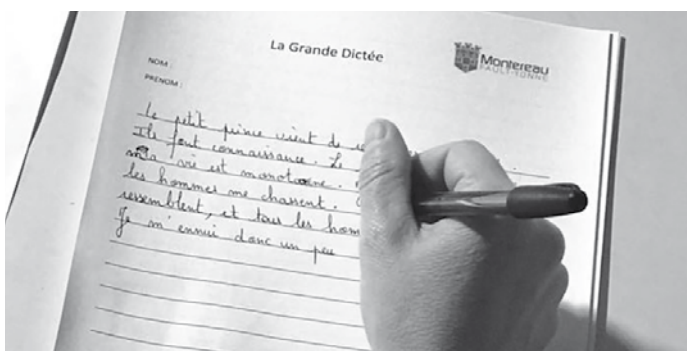 La Grande Dictée
Montereau
FAULT-YONNE
NOM :
PRENOM :
Le petit prince vient de
Ils font connaissance. Le
ma vie est monotone.
les hommes me chassent.
ressemblent, et tous les hom
Je m'ennui donc un peu